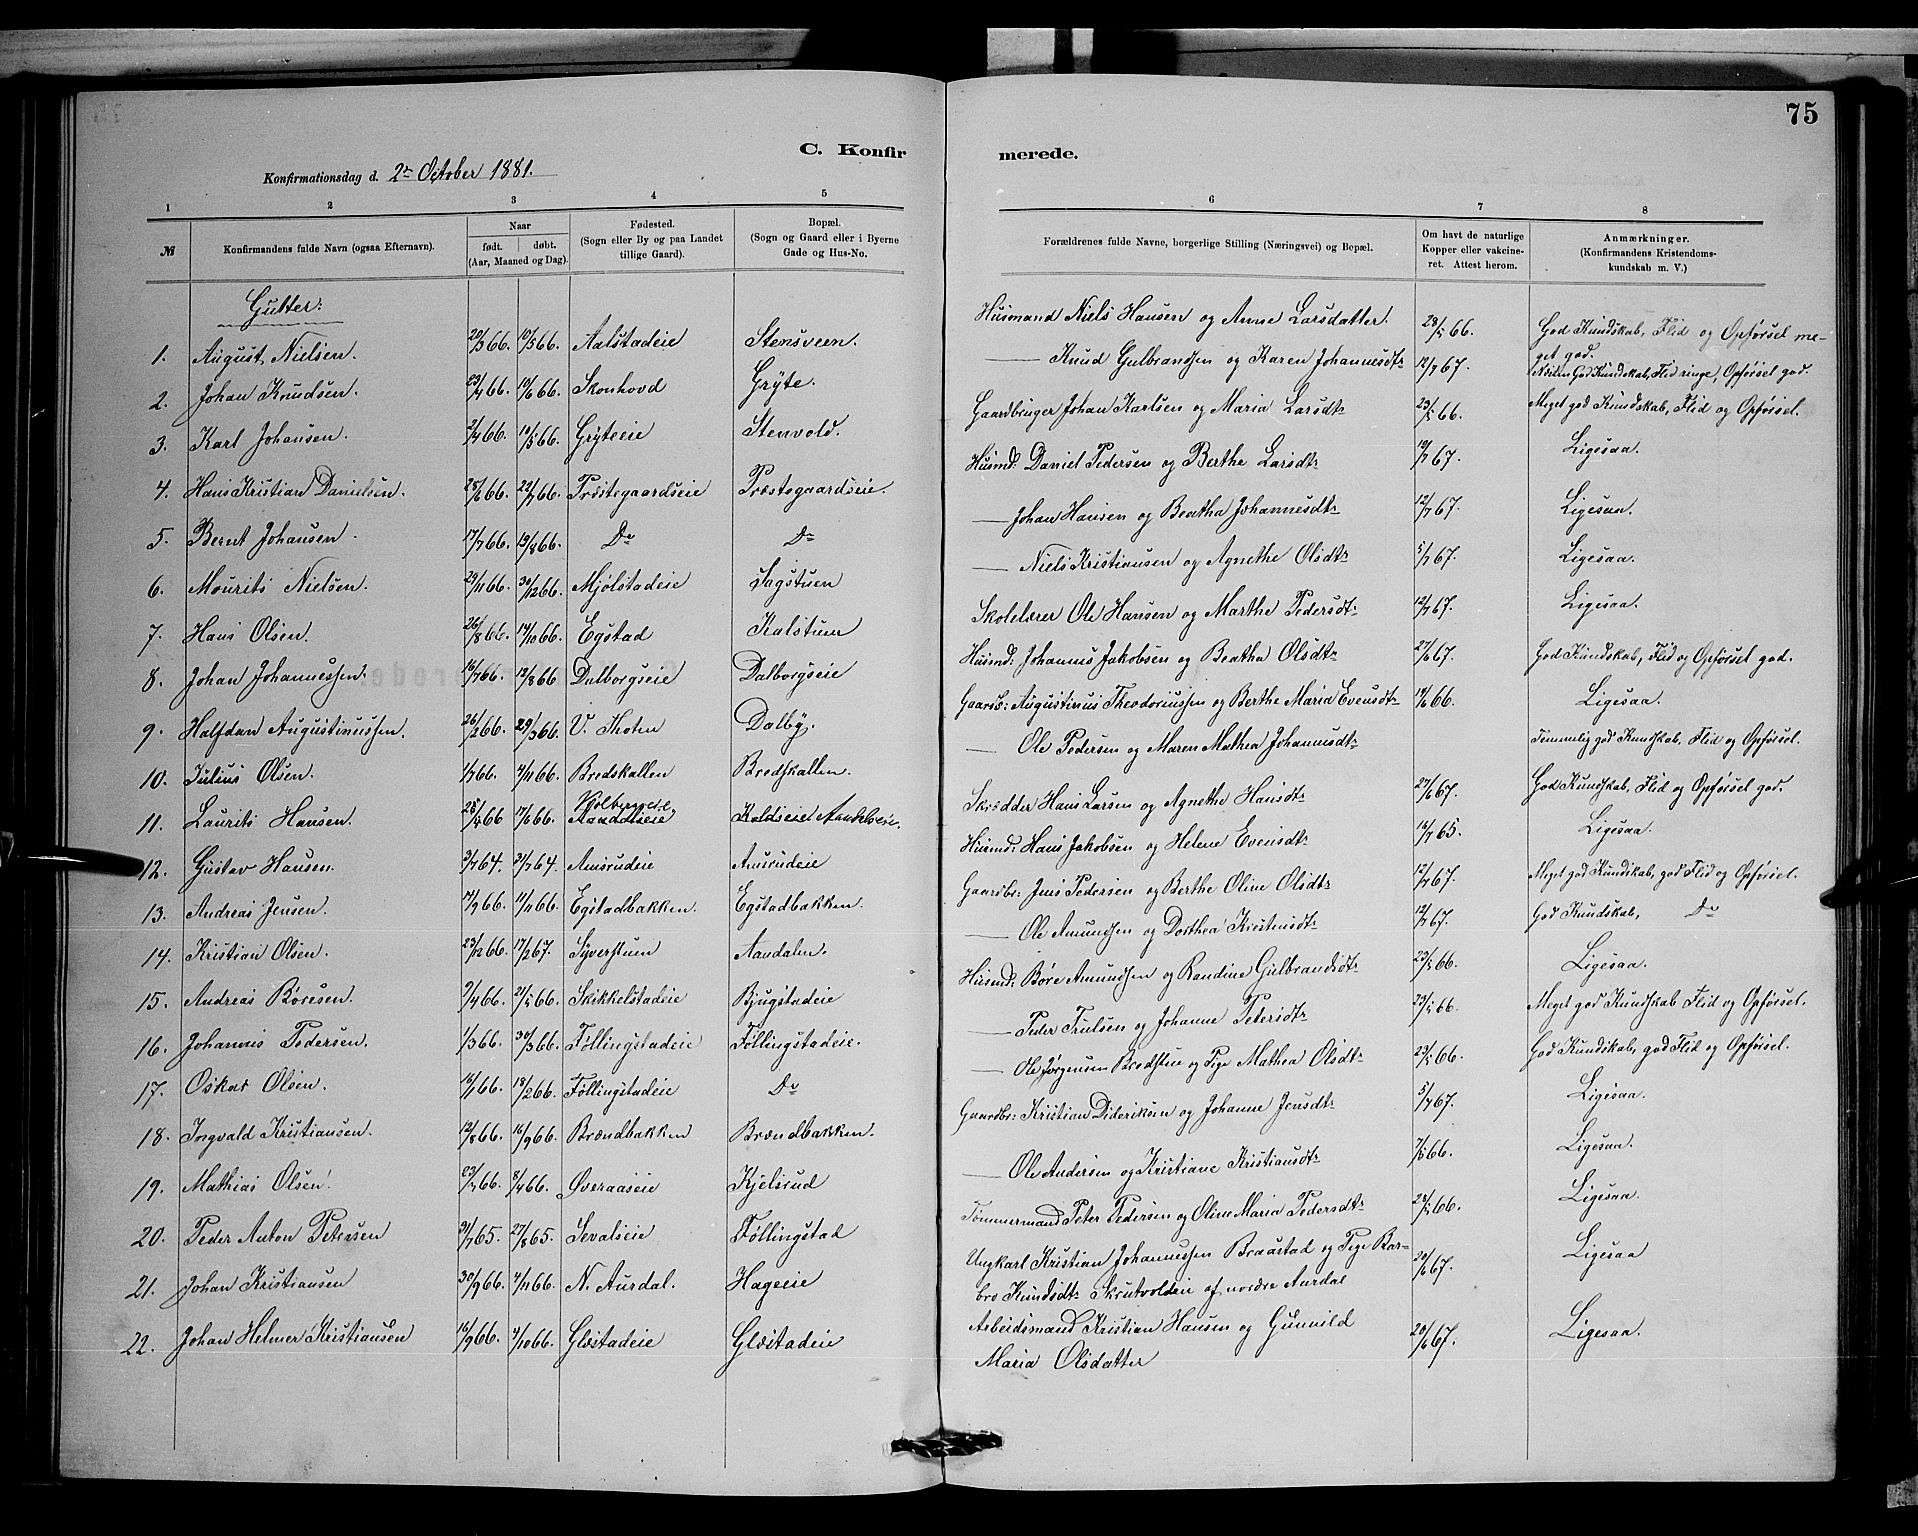 75
C. Konfirmerede.
Konfirmationsdag d. 2n October 1881.
1 2 3 4 5 6 7 8
№ Konfirmandens fulde Navn (ogsaa Efternavn). Naar født. døbt. (Aar, Maaned og Dag). Fødested. (Sogn eller By og paa Landet tillige Gaard). Bopæl. (Sogn og Gaard eller i Byerne Gade og Hus-No. Forældrenes fulde Navne, borgerlige Stilling (Næringsvei) og Bopæl. Om havt de naturlige Kopper eller vakcineret. Attest herom. Anmærkninger. (Konfirmandens Kristendomskundskab m. V.)
Gutter:
1. August Nielsen. 20/3 66. 10/5 66. Aalstadeie Stensveen. Husmand Niels Hansen og Anne Larsdatter. 23/5 66. God Kundskab, Flid og Opførsel meget god.
2. Johan Knudsen. 23/4 66. 10/6 66. Skonhovd Grÿte. — Knud Gulbrandsen og Karen Johannesdt: 12/7 67. Næsten God Kundskab, Flid ringe, Opførsel god.
3. Karl Johansen. 2/4 66. 10/5 66. Grÿteeie Stenvold. Gaardbruger Johan Karlsen og Maria Larsdt: 23/5 66. Meget god Kundskab, Flid og Opførsel.
4. Hans Kristian Danielsen. 25/6 66. 22/7 66. Præstegaardseie Præstegaardseie. Husmd: Daniel Pedersen og Berthe Larsdt: 19/7 67. Ligesaa.
5. Bernt Johansen. 17/7 66. 19/8 66. Do Do — Johan Hansen og Beatha Johannesdt: 12/7 67. Ligesaa.
6. Mourits Nielsen. 29/11 66. 30/12 66. Mjølstadeie Sagstuen — Niels Kristiansen og Agnethe Olsdt: 5/7 67. Ligesaa.
7. Hans Olsen. 26/8 66. 14/10 66. Egstad Kalstuen Skolelærer Ole Hansen og Marthe Pedersdt: 12/7 67. Ligesaa.
8. Johan Johannessen. 16/7 66. 12/8 66 Dalborgseie Dalborgseie Husmd: Johannes Jakobsen og Beatha Olsdt: 27/6 67. God Kundskab, Flid og Opførsel god.
9. Halfdan Augustinussen. 26/2 66. 29/3 66. V. Thoten Dalbÿ. Gaardb: Augustinus Theodoriussen og Berthe Maria Evensdt: 14/6 66. Ligesaa.
10. Julius Olsen. 1/7 66. 4/11 66. Bredskallen Bredskallen. — Ole Pedersen og Maren Mathea Johannesdt: Temmelig god Kundskab, Flid og Opførsel.
11. Laurits Hansen. 17/6 66. Kolbergseie Skrædder Hans Larsen og Agnethe Hansdt: 27/6 67. God Kundskab, Flid og Opførsel god.
12. Gustav Hansen. 3/7 64. 31/7 64. Amsrudeie Amrudeie Husmd: Hans Jakobsen og Helene Evensdt: 16/7 65. Ligesaa.
13. Andreas Jensen. 17/9 66. 11/11 66. Egstadbakken. Egstadbakken. Gaardbr: Jens Pedersen og Berthe Oline Olsdt: 12/7 67. Meget god Kundskab, god Flid og Opførsel.
14. Kristian Olsen. 23/12 66. 17/2 67. Syverstuen Aandalen. — Ole Amundsen og Dorthea Kristensdt: 12/7 67. God Kundskab, Do
15. Andreas Børesen. 9/4 66. 21/5 66. Skikkelstadeie Bjugstadeie Husmd: Børe Amundsen og Randine Gulbrandsdt: 23/5 66. Ligesaa.
16. Johannes Pedersen. 1/3 66. 30/3 66. Føllingstadeie Føllingstadeie. — Peder Trulsen og Johanne Pedersdt: 23/5 66. Meget god Kundskab Flid og Opførsel.
17. Oskar Olsen. 16/1 66. 18/2 66. Føllingstadeie Do Ole Jørgensen Bredstue og Pige Mathea Olsdt: 23/5 66. God Kundskab, god Flid og Opførsel.
18. Ingvald Kristiansen. 12/8 66. 16/9 66. Brændbakken Brændbakken. Gaardbr: Kristian Dideriksen og Johanne Jensdt: 5/7 67. Ligesaa.
19. Mathias Olsen. 8/4 66. Øveraaseie Kjelsrud — Ole Andersen og Kristiane Kristiansdt: 7/5 66. Ligesaa.
20. Peder Anton Petersen 31/7 65. 27/8 65. Sevalseie Føllingstad Tømmermand Peter Pedersen og Oline Maria Pedersdt: 24/5 66. Ligesaa.
21. Johan Kristiansen 30/9 66. 4/11 66. N. Aurdal. Hageeie Ungkarl Kristian Johannessen Braastad og Pige Barbro Knudsdt: Skrutvolden af nordre Aurdal 20/6 67. Ligesaa
22. Johan Helmer Kristiansen 16/9 66. 4/10 66. Glæstadeie Glæstadeie Arbeidsmand Kristian Hansen og Gunnild Maria Olsdatter 20/6 67. Ligesaa.